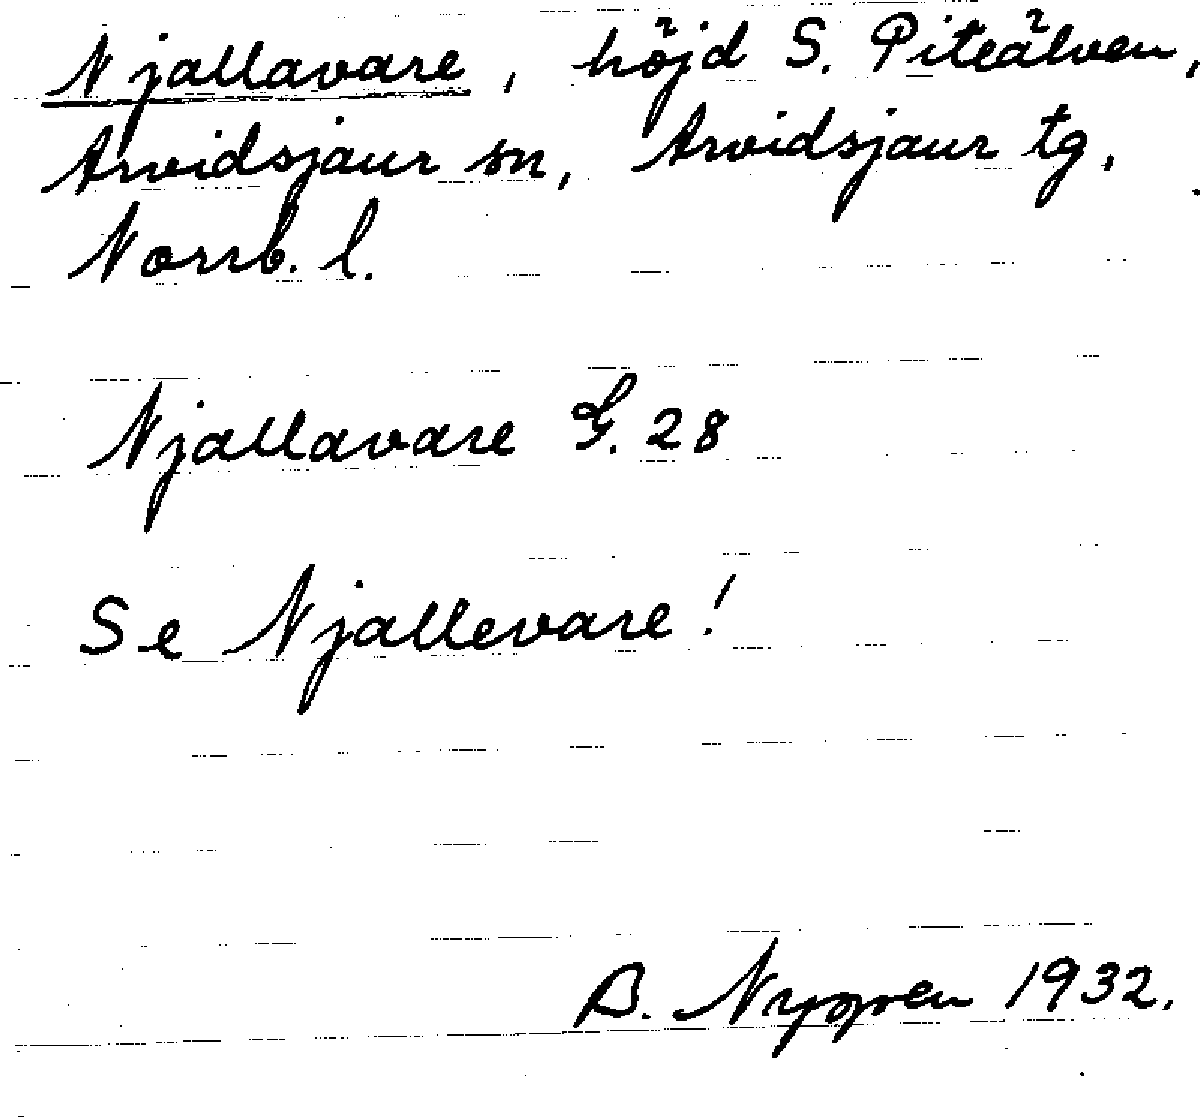 Njallavare, höjd S. Piteälven,
Arvidsjaur sn, Arvidsjaur tg,
Norrb. l.
Njallavare G. 28
Se Njallevare!
B. 1932.